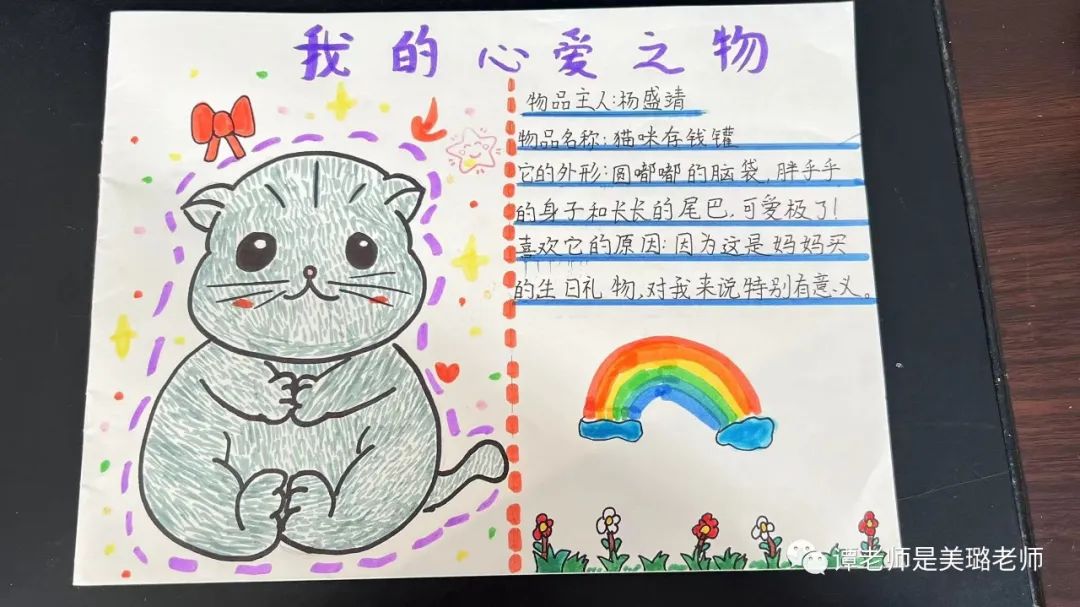 我的心爱之物
物品主人:杨盛靖
物品名称:猫咪存钱罐
它的外形:圆嘟嘟的脑袋,胖乎乎
的身子和长长的尾巴,可爱极了!
喜欢它的原因:因为这是妈妈买
的生日礼物,对我来说特别有意义。
谭老师是美璐老师